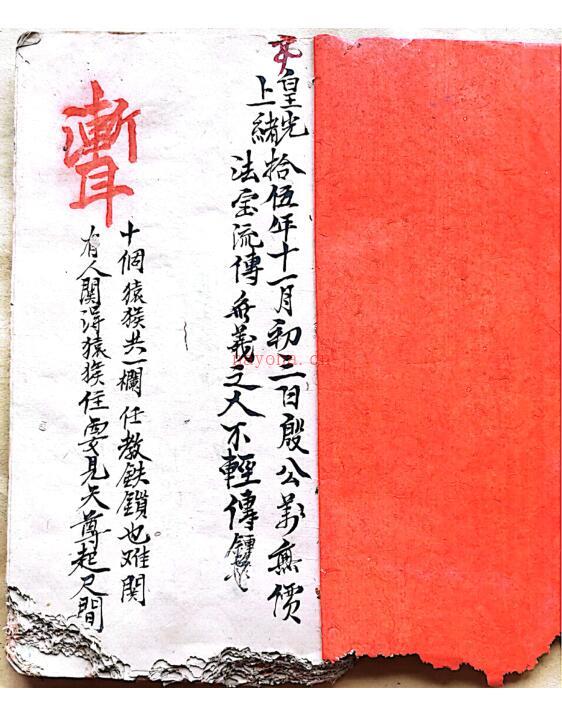 皇上
光緒拾伍年十一月初三日殷公無價
法宝流傳無義之人不輕傳
漸耳
十個猿猴共一欄任教鉄鎖也难関
有人関得猿猴住要見天尊起尺間